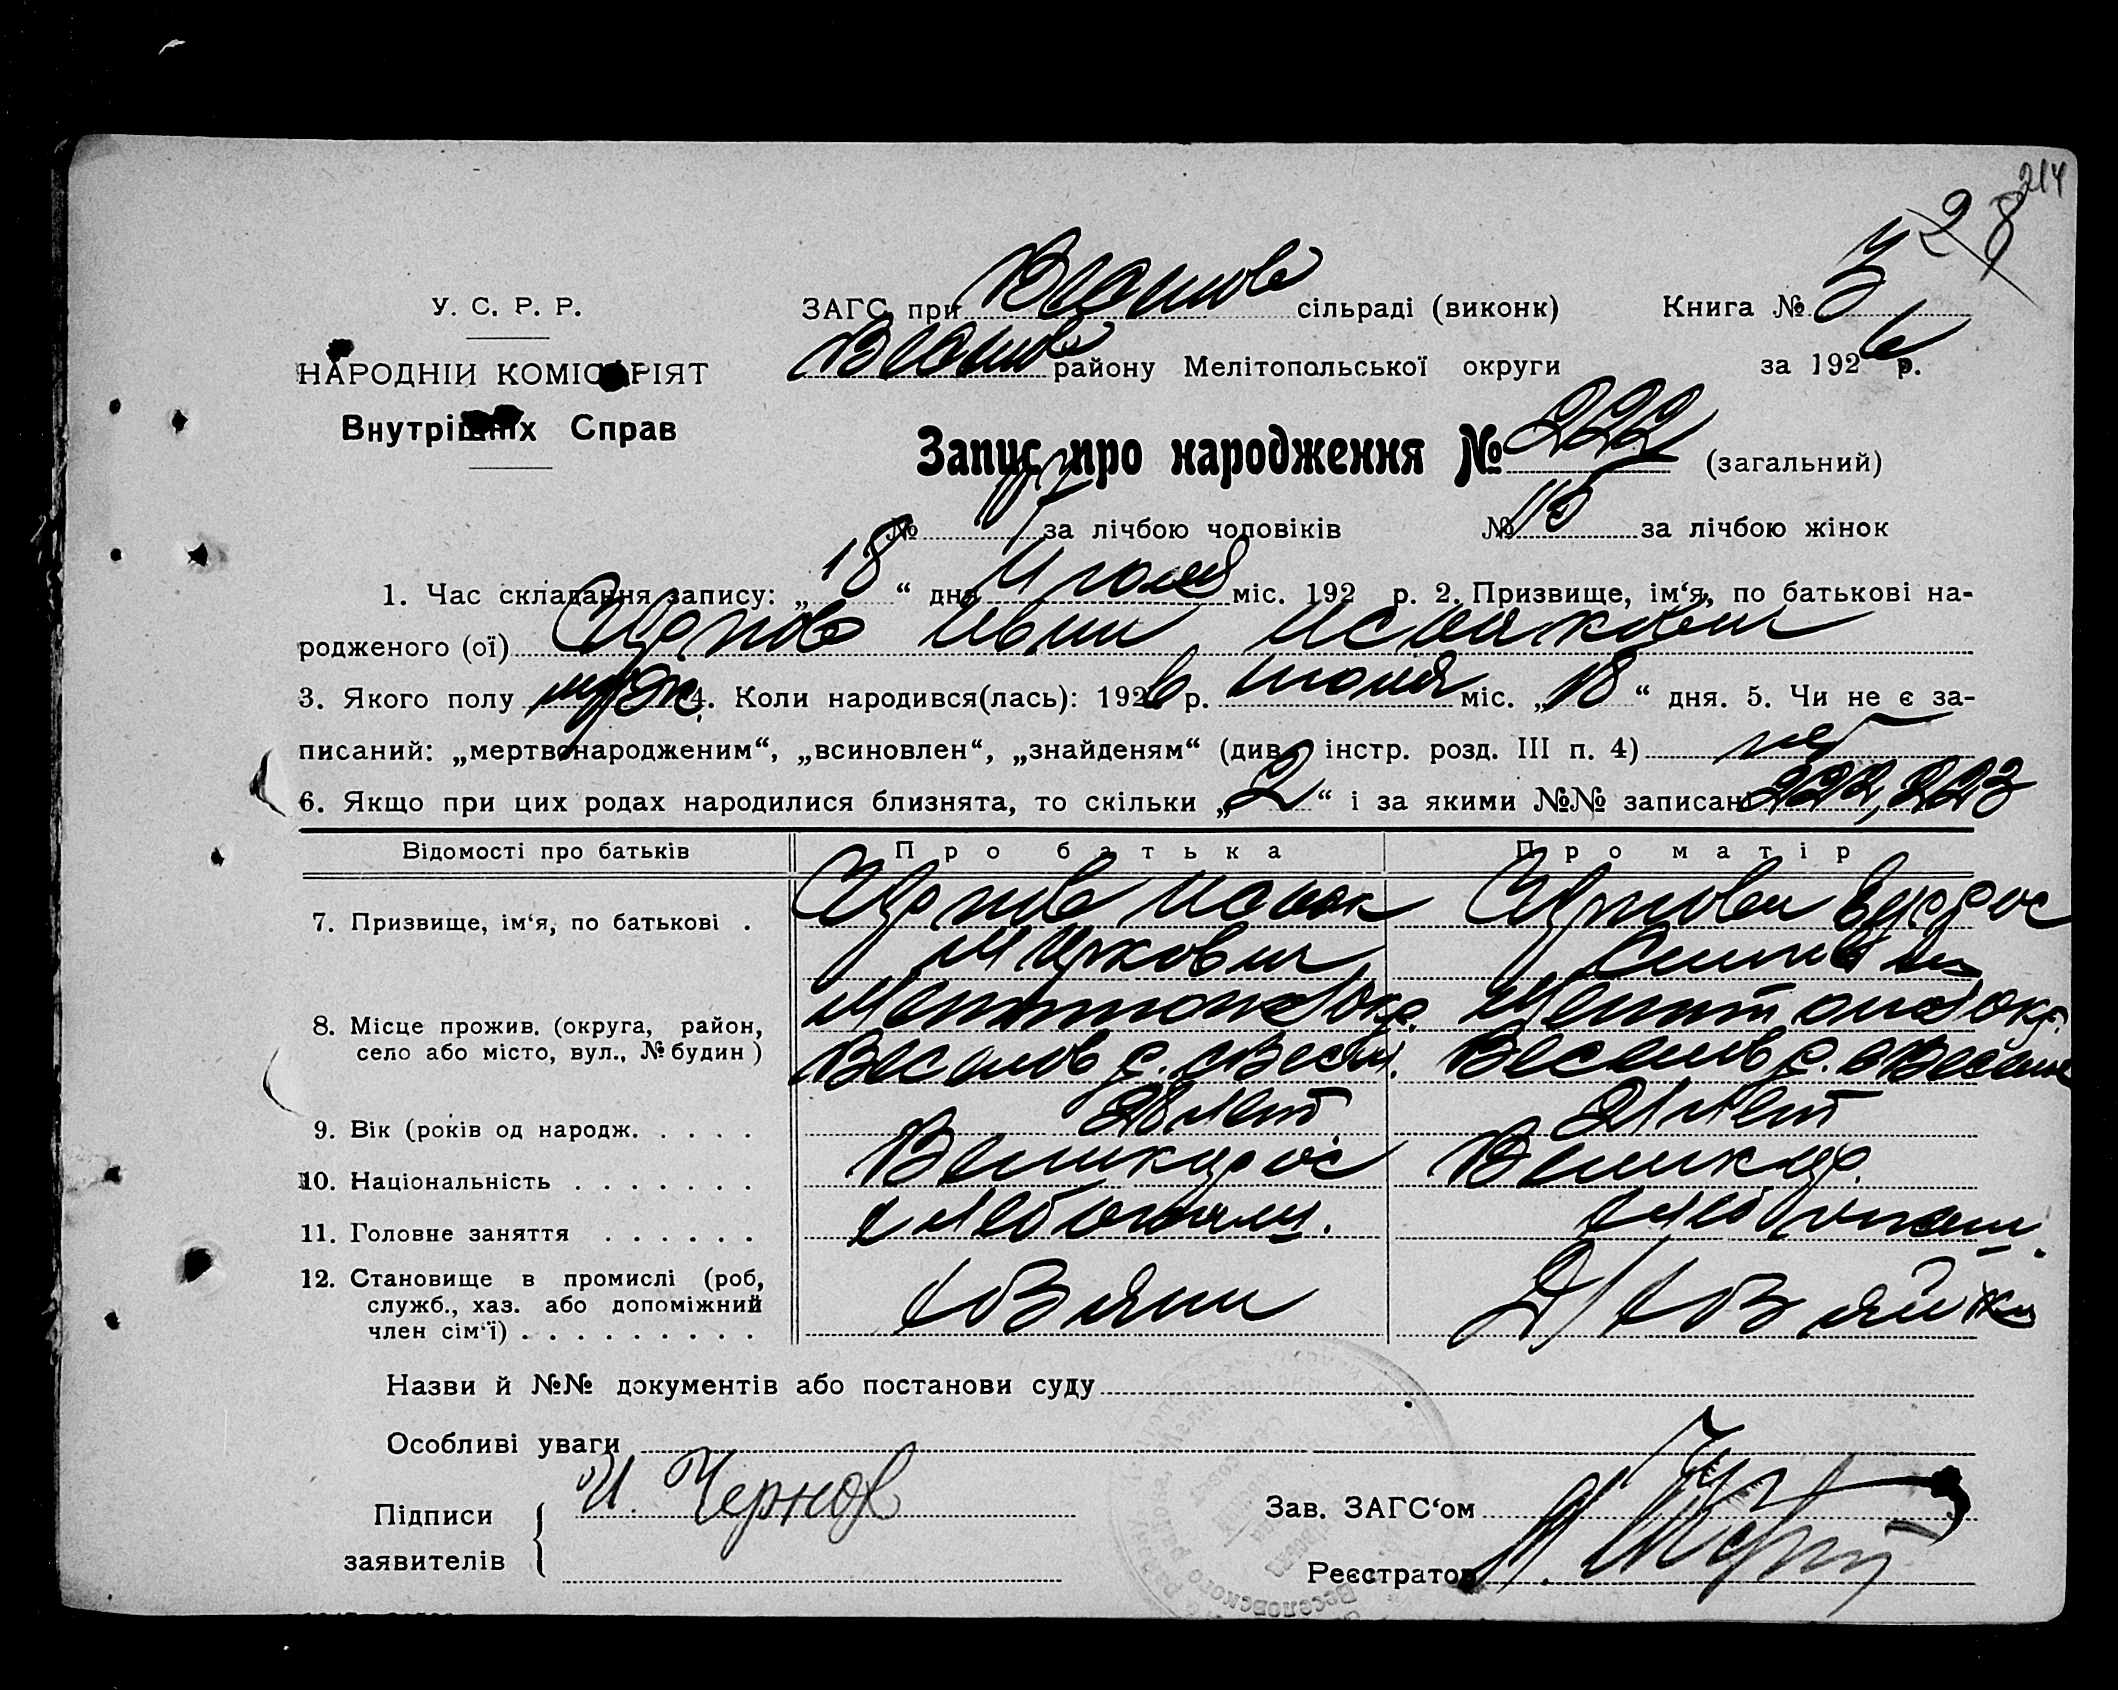 214
28
У. С. Р. Р.
ЗАГС при Веселов сільраді (виконк) Книга № 3
НАРОДНІЙ КОМІСАРІЯТ
Веселов району Мелітопольської округи за 1926 р.
Внутрішніх Справ
Запис про народження № 222 (загальний)
№ за лічбою чоловіків № 115 за лічбою жінок
1. Час складання запису: „18“ дня Июля міс. 192 р. 2. Призвище, ім‘я, по батькові на-
родженого (ої) Чернов Иван Исаакович
3. Якого полу муж. 4. Коли народився(лась): 1926 р. июля міс. „18“ дня. 5. Чи не є за-
писаний: „мертвонародженим“, „всиновлен“, „знайденям“ (див. інстр. розд. III п. 4) нет
6. Якщо при цих родах народилися близнята, то скільки „2“ і за якими №№ записані 222, 223
Відомості про батьків Про батька Про матір
7. Призвище, ім‘я, по батькові . Чернов Исаак Чернова
Маркович
8. Місце прожив. (округа, район, Мелитопол окр. Мелитопол окр.
село або місто, вул., № будин) Веселов р. с Весел. Веселов р. с Веселое
9. Вік (років од народж. . . . . лет. 21 лет
10. Національність . . . . . . . Великорос Великор.
11. Головне заняття . . . . . . хлебопаш. хлебопаш.
12. Становище в промислі (роб, хозяин Д/хозяйка
служб., хаз. або допоміжний
член сім‘ї) . . . . . . . . .
Назви й №№ документів або постанови суду
Особливі уваги
Підписи И. Чернов Зав. ЗАГС‘ом
заявителів Реєстратор